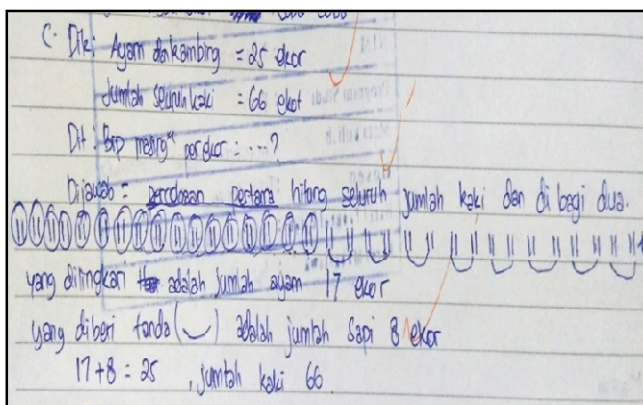 C. Dik: Ayam dan kambing = 25 ekor
Jumlah seluruh kaki = 66 ekor
Dit: Brp masing" perekor: ...?
Dijawab = percobaan pertama hitung seluruh jumlah kaki dan di bagi dua.
yang dilingkari adalah jumlah ayam 17 ekor
yang diberi tanda (‿) adalah jumlah sapi 8 ekor
17+8 = 25, jumlah kaki 66